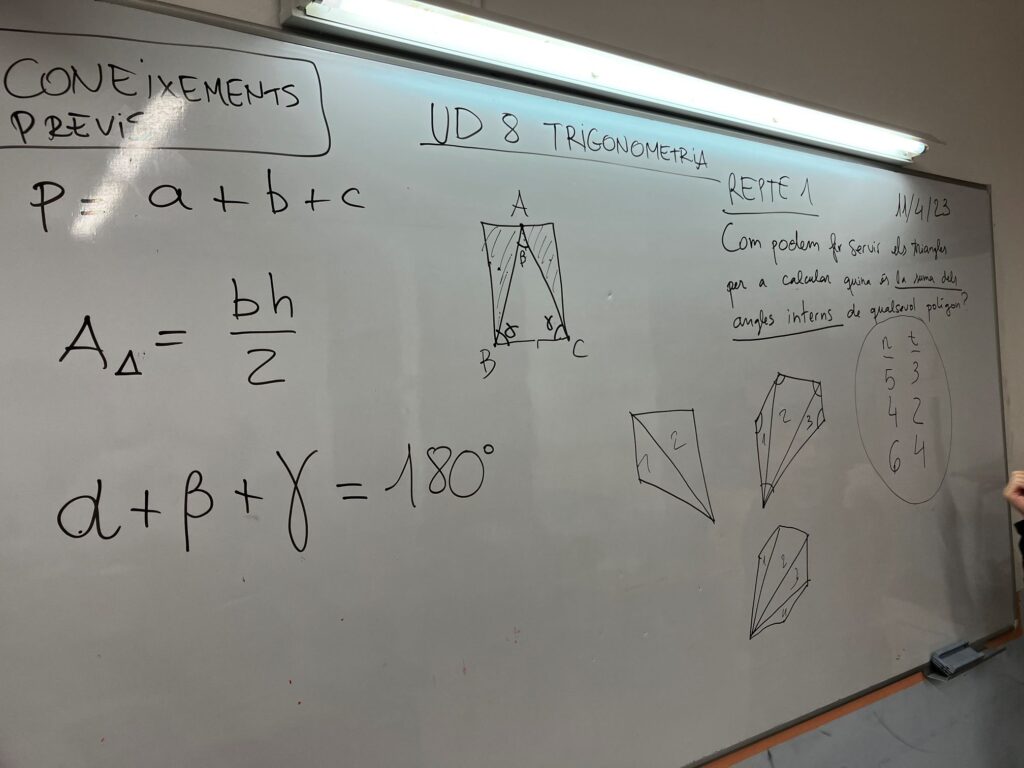 CONEIXEMENTS
PREVIS
P = a + b + c
A△ = bh/2
α + β + γ = 180°
UD 8 TRIGONOMETRIA
A
β
α γ
B C
REPTE 1 11/4/23
Com podem fer servir els triangles
per a calcular quina és la suma dels
angles interns de qualsevol polígon?
n t
5 3
4 2
6 4
1 2
1 2 3
1 2 3 4